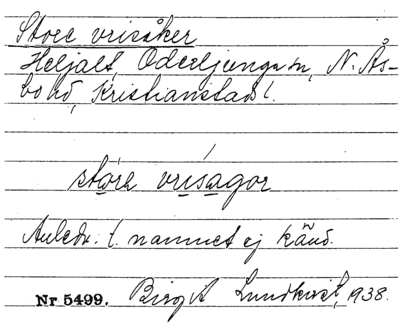 Store vrisåker
Heljalt, Oderljunga sn, N. Ås-
bo hd, Kristianstads l.
stóra vrísagor
Anledn. t. namnet ej känd.
Nr 5499. Birgit Lundkvist, 1938.